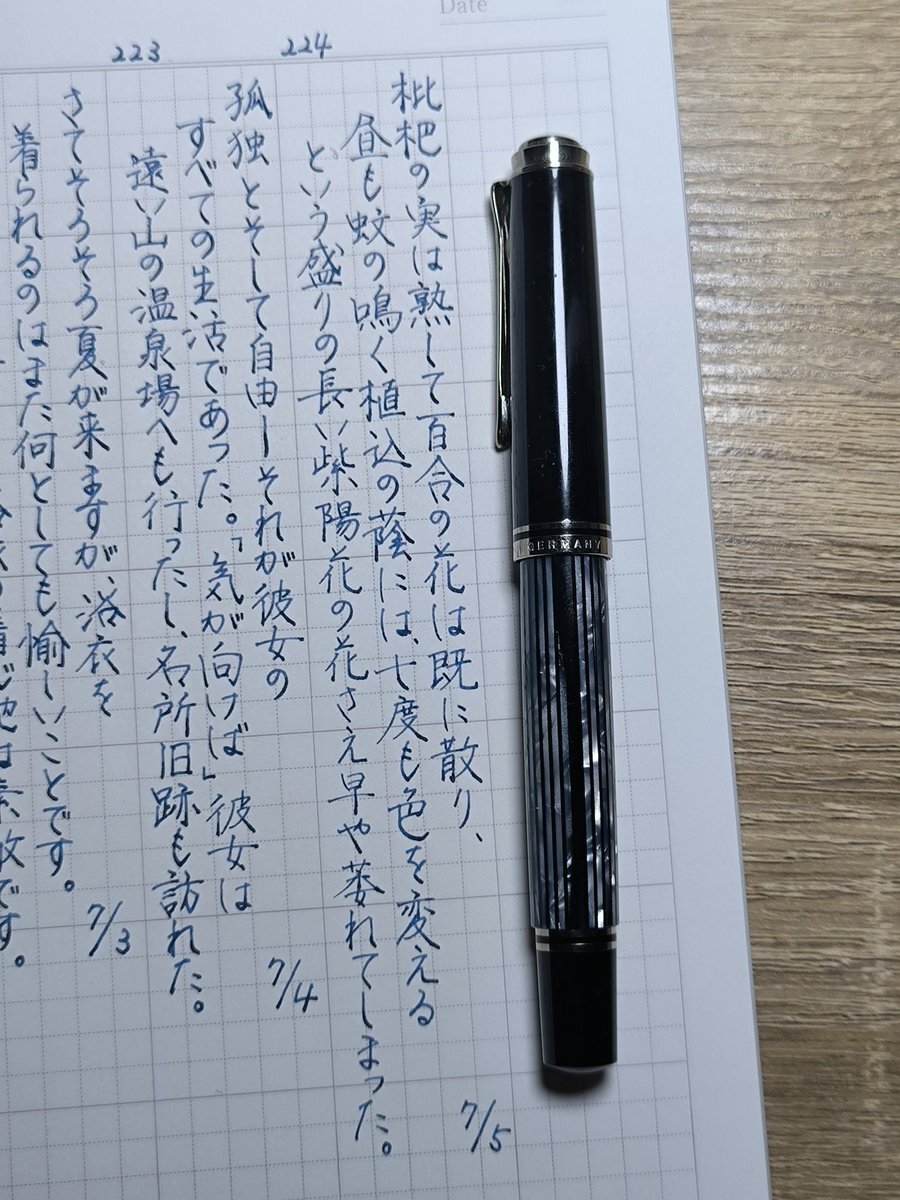 Date
224
枇杷の実は熟して百合の花は既に散り、
昼も蚊の鳴く植込の蔭には、七度も色を変える
という盛りの長い紫陽花の花さえ早や萎れてしまった。
7/5
223
孤独とそして自由ーそれが彼女の
すべての生活であった。「気が向けば」彼女は
遠い山の温泉場へも行ったし、名所旧跡も訪れた。
7/4
さてそろそろ夏が来ますが、浴衣を
着られるのはまた何としても愉しいことです。
7/3
は素敵です。
GERMANY